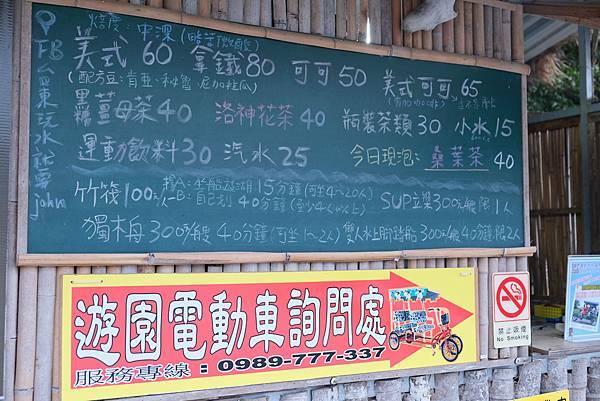 FB台東玩水就要john
焙度:中深
美式60 拿鐵80 可可50 美式可可65
(配方豆:肯亞、秘魯、尼加拉瓜)
黑糖薑母茶40 洛神花茶40 瓶裝茶類30 小水15
運動飲料30 汽水25 今日現泡:桑葉茶40
竹筏100元/人 A:坐船遊湖15分鐘(可坐4~20人)
B:自己划40分鐘(至少4人以上) SUP立槳300元/艘 限1人
獨木舟300元/艘 40分鐘(可坐1~2人) 雙人水上腳踏船300元/艘40分鐘 限2人
遊園電動車詢問處
服務專線:0989-777-337
禁止吸煙
No Smoking